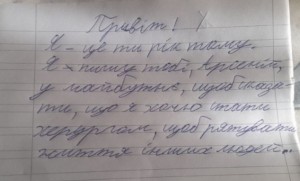 Привіт!
Я - це ти рік тому.
Я пишу тобі, Арсеній,
у майбутнє, щоб сказа-
ти, що я хочу стати
херургом, щоб рятувати
життя інших людей.